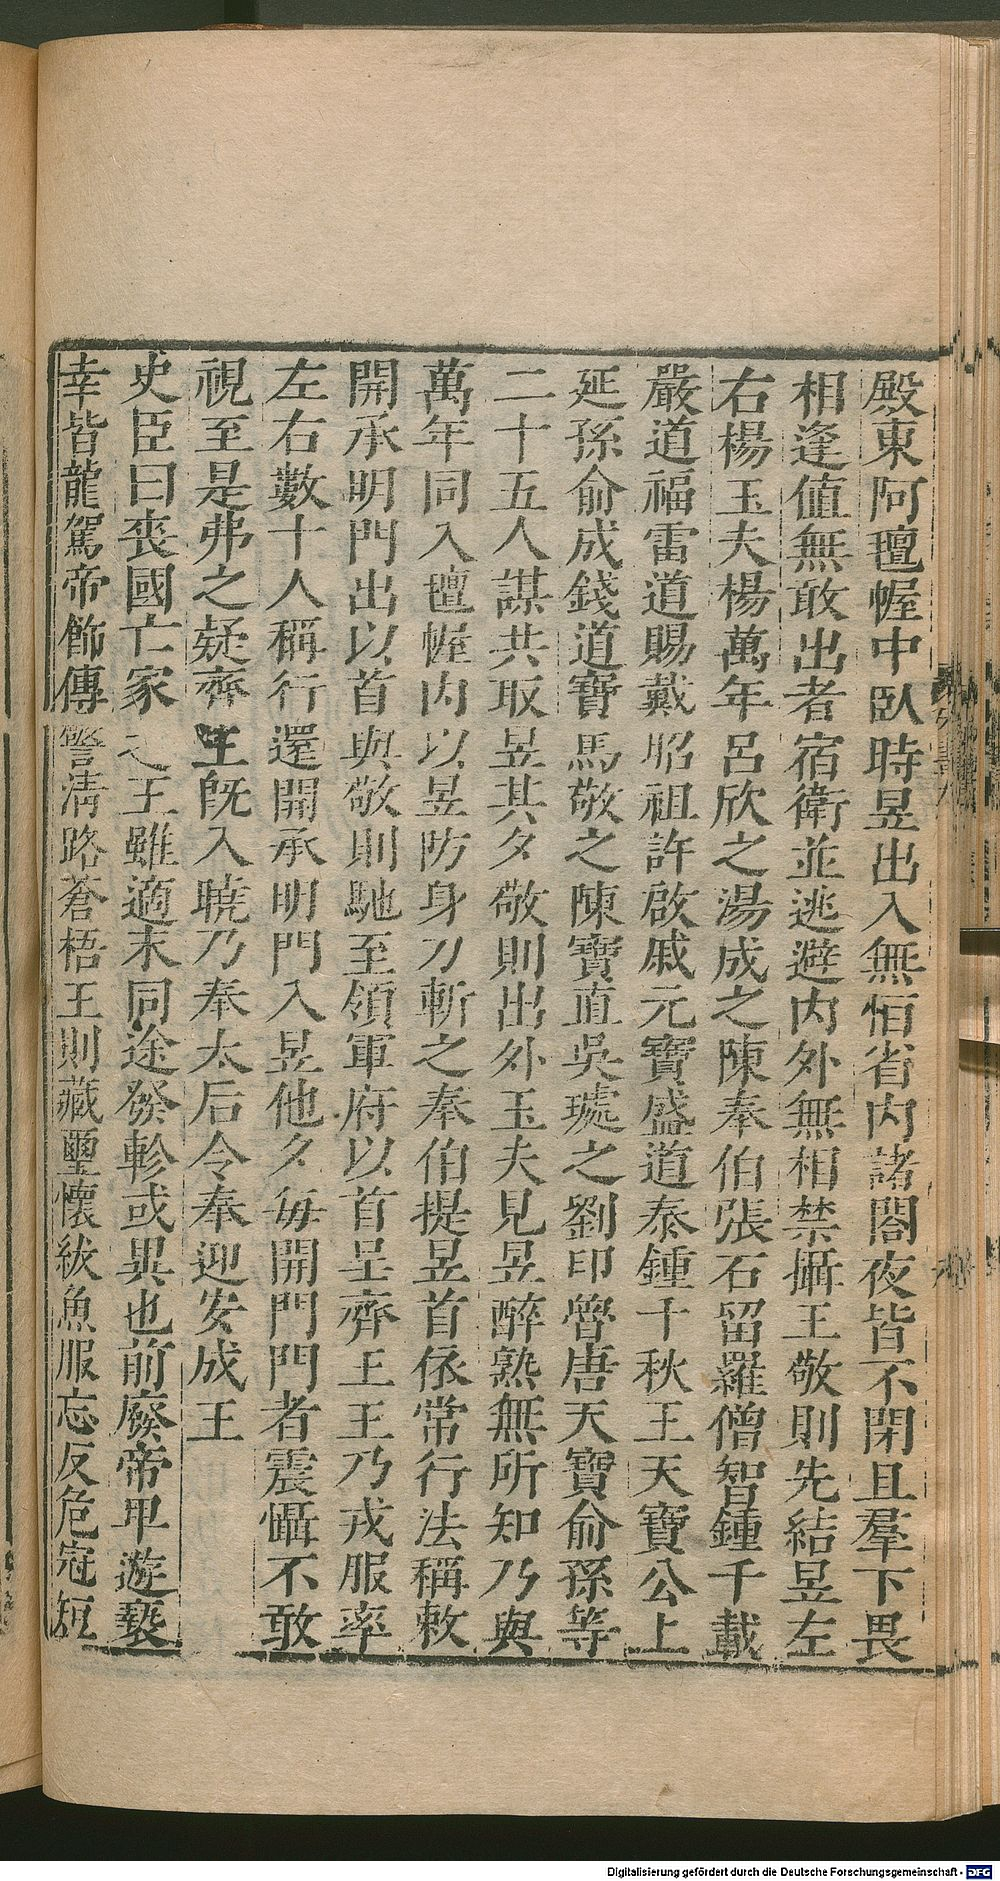 殿東阿氊幄中臥時昱出入無恒省內諸閤夜皆不閉且羣下畏
相逢值無敢出者宿衛並逃避內外無相禁攝王敬則先結昱左
右楊玉夫楊萬年呂欣之湯成之陳奉伯張石留羅僧智鍾千載
嚴道福雷道賜戴昭祖許啟戚元寶盛道泰鍾千秋王天寶公上
延孫俞成錢道寶馬敬之陳寶直吳璩之劉印魯唐天寶俞孫等
二十五人謀共取昱其夕敬則出外玉夫見昱醉熟無所知乃與
萬年同入氊幄內以昱防身刀斬之奉伯提昱首依常行法稱敕
開承明門出以首與敬則馳至領軍府以首呈齊王王乃戎服率
左右數十人稱行還開承明門入昱他夕每開門門者震懾不敢
視至是弗之疑齊王既入曉乃奉太后令奉迎安成王
史臣曰喪國亡家之王雖適末同途發軫或異也前廢帝卑遊褻
幸皆龍駕帝飾傳警清路蒼梧王則藏璽懷紱魚服忘反危冠短
Digitalisierung gefördert durch die Deutsche Forschungsgemeinschaft - DFG